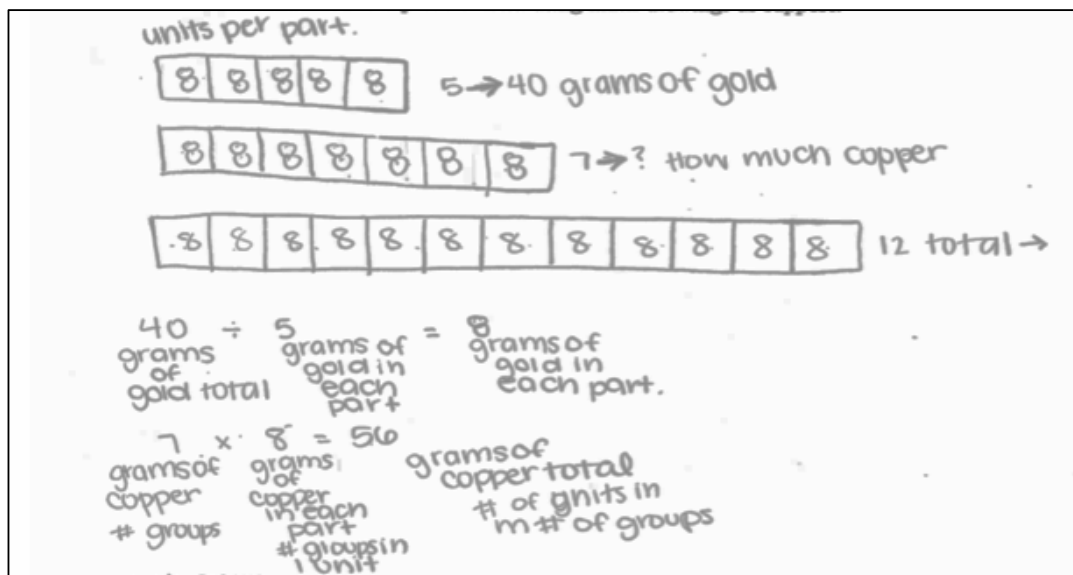 units per part.
8 8 8 8 8 5→40 grams of gold
8 8 8 8 8 8 8 7→? How much copper
8 8 8 8 8 8 8 8 8 8 8 8 12 total→
40 ÷ 5 = 8
grams of gold total
grams of gold in each part
grams of gold in each part.
7 x 8 = 56
grams of copper # groups
grams of copper in each part # groups in 1 unit
grams of copper total # of gnits in m # of groups